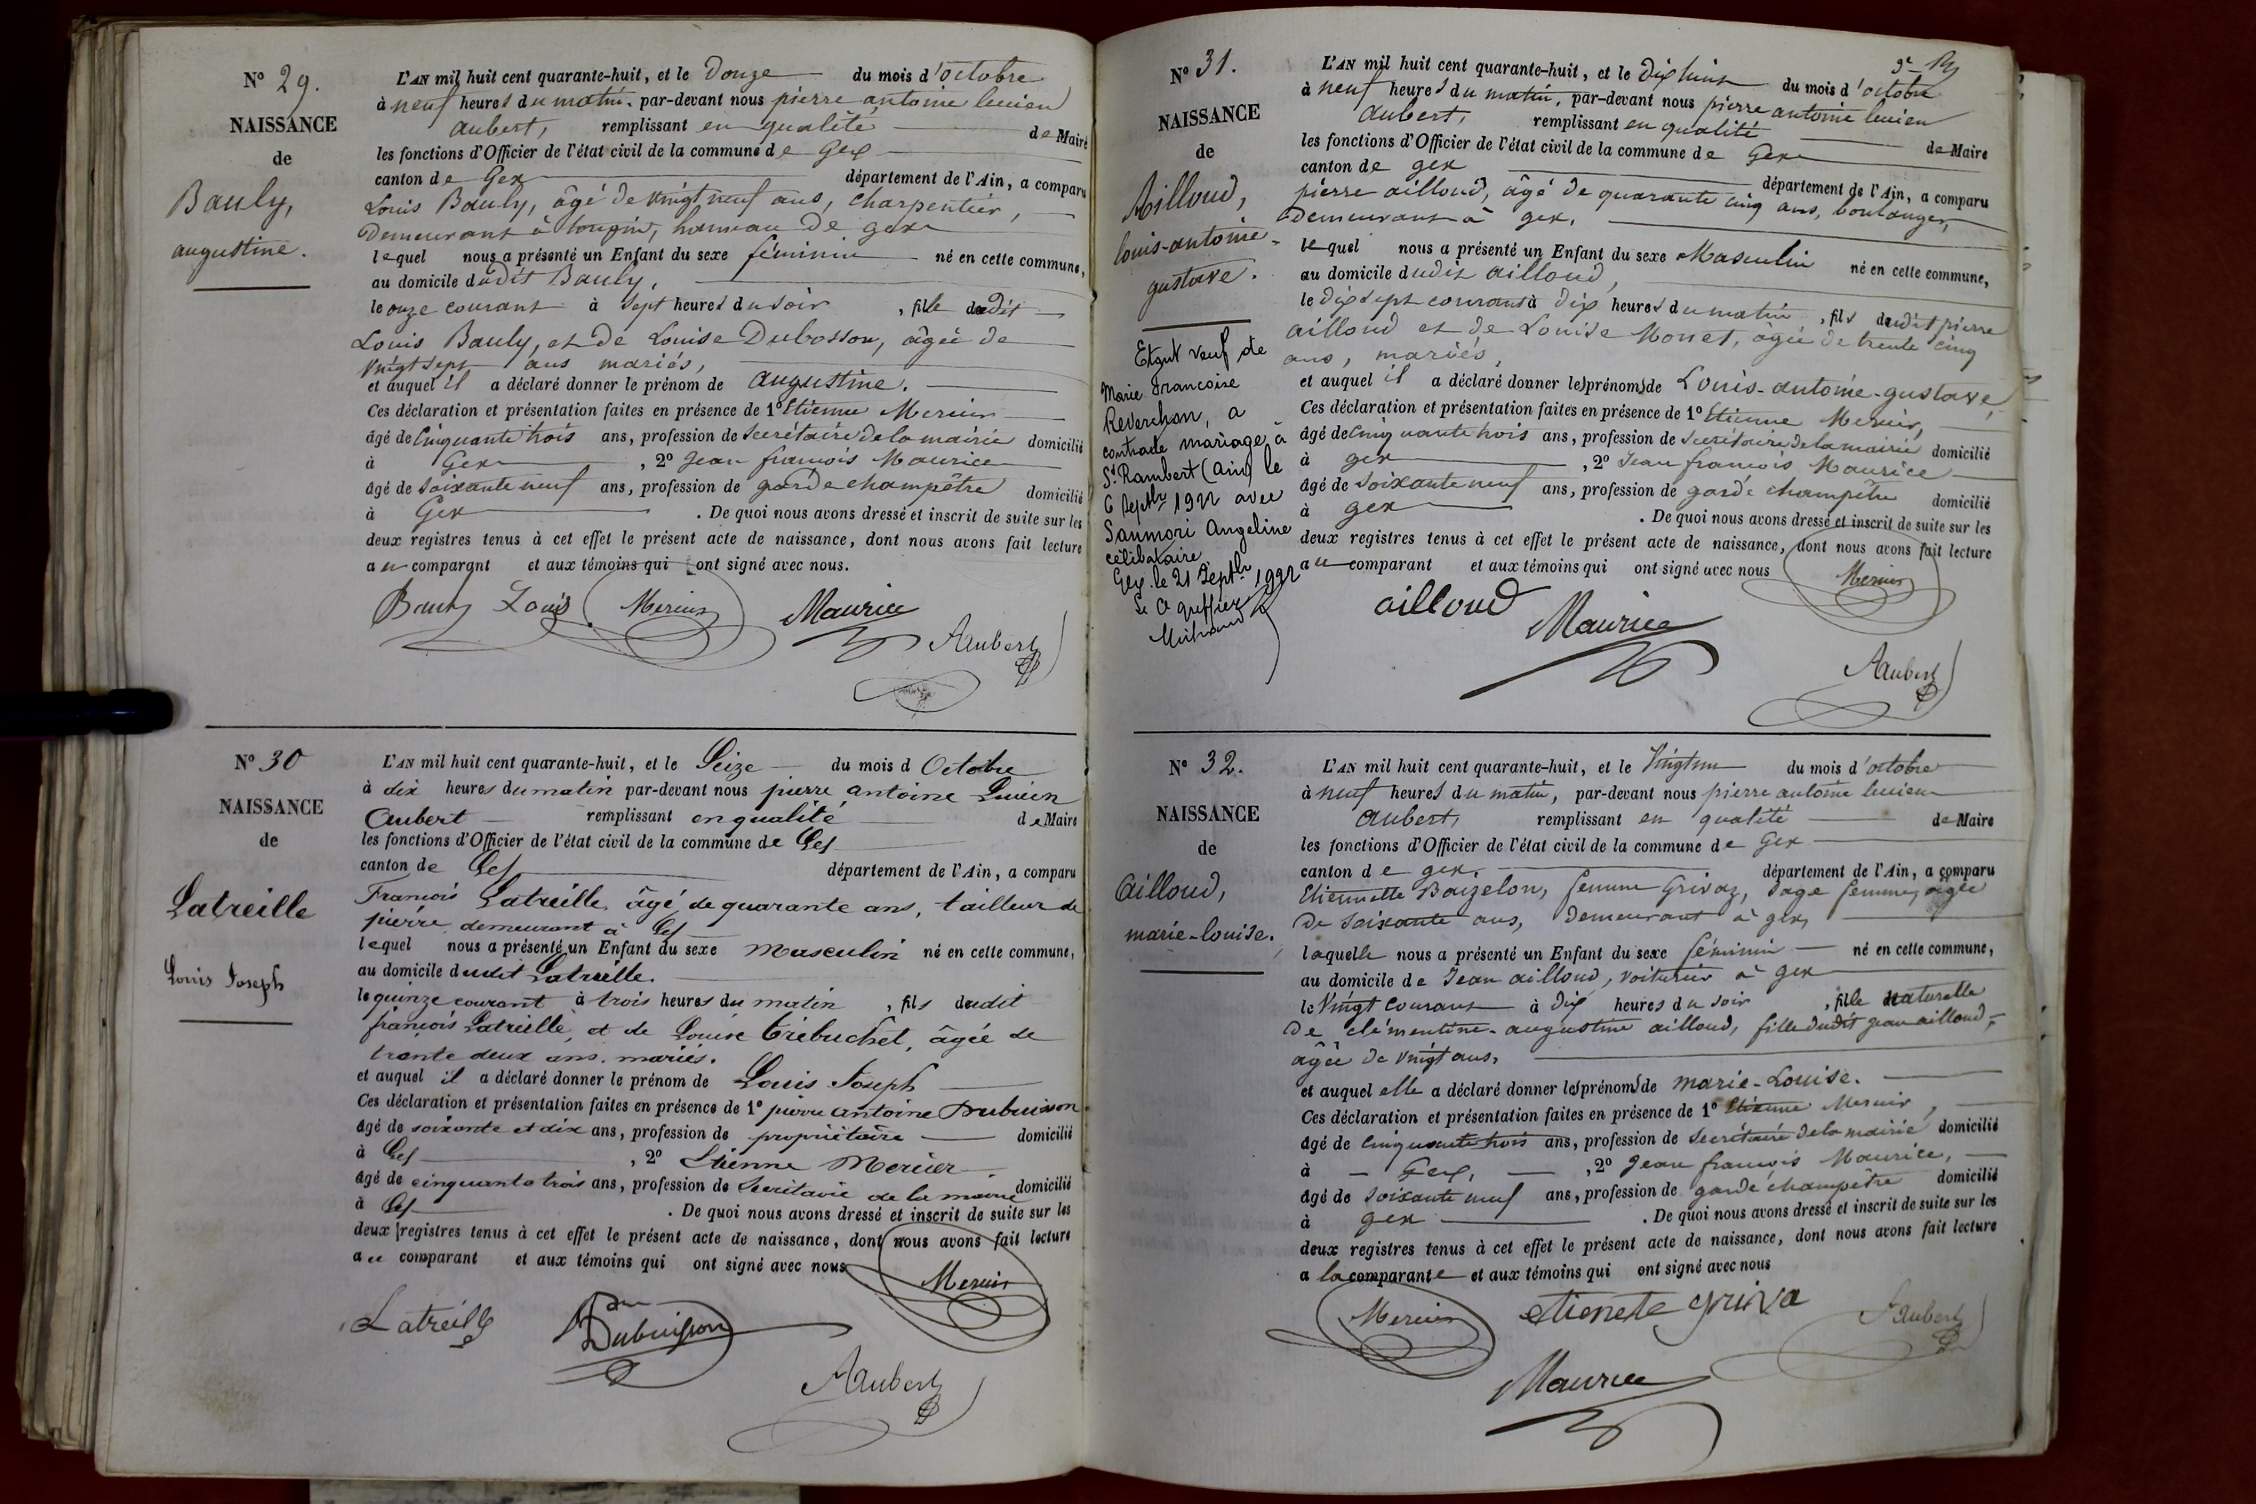 N° 29.
NAISSANCE
de
Bauly,
augustine.
L'AN mil huit cent quarante-huit, et le Douze du mois d'octobre
à neuf heures du matin. par-devant nous pierre antoine lucien
aubert, remplissant en qualité de Maire
les fonctions d'Officier de l'état civil de la commune de Gex
canton de Gex département de l'Ain, a comparu
Louis Bauly, âgé de vingt neuf ans, charpentier,
Demeurant à tougin, hameau De gex
lequel nous a présenté un Enfant du sexe féminin né en cette commune,
au domicile dudit Bauly,
le onze courant à sept heures du soir, fille dudit
Louis Bauly, et de Louise Dubosson, âgée de
vingt sept ans mariés,
et auquel il a déclaré donner le prénom de augustine.
Ces déclaration et présentation faites en présence de 1° Etienne Mercier
âgé de Cinquante trois ans, profession de Secrétaire de la mairie domicilié
à Gex, 2° Jean françois Maurice
âgé de soixante neuf ans, profession de garde champêtre domicilié
à Gex. De quoi nous avons dressé et inscrit de suite sur les
deux registres tenus à cet effet le présent acte de naissance, dont nous avons fait lecture
au comparant et aux témoins qui ont signé avec nous.
Bauly Louis Mercier Maurice
Aubert
N° 30
NAISSANCE
de
Latreille
Louis Joseph
L'AN mil huit cent quarante-huit, et le Seize du mois d Octobre
à dix heures du matin par-devant nous pierre antoine Lucien
Aubert remplissant en qualité de Maire
les fonctions d'Officier de l'état civil de la commune de Gex
canton de Gex département de l'Ain, a comparu
François Latreille âgé de quarante ans, tailleur de
pierre demeurant à Gex
lequel nous a présenté un Enfant du sexe masculin né en cette commune,
au domicile dudit Latreille.
le quinze courant à trois heures du matin, fils dudit
françois Latreille, et de Louise Trébuchet, âgée de
trente deux ans. mariés.
et auquel il a déclaré donner le prénom de Louis Joseph
Ces déclaration et présentation faites en présence de 1° pierre antoine Dubuisson
âgé de soixante et dix ans, profession de propriétaire domicilié
à Gex, 2° Etienne Mercier
âgé de cinquante trois ans, profession de Secrétaire de la mairie domicilié
à Gex. De quoi nous avons dressé et inscrit de suite sur les
deux registres tenus à cet effet le présent acte de naissance, dont nous avons fait lecture
au comparant et aux témoins qui ont signé avec nous
Mercier
Latreille Dubuisson
Aubert
N° 31.
NAISSANCE
de
Ailloud,
louis-antoine-
gustave.
Etant veuf de
Marie Francoise
Reverchon, a
contracté mariage à
St Rambert (Ain) le
6 Septbre 1922 avec
Saumori Angeline
célibataire.
Gex. le 21 Septbre 1922
Le greffier
L'AN mil huit cent quarante-huit, et le Dix huit du mois d'octobre
à neuf heures du matin, par-devant nous pierre antoine lucien
aubert, remplissant en qualité de Maire
les fonctions d'Officier de l'état civil de la commune de Gex
canton de gex département de l'Ain, a comparu
pierre ailloud, âgé de quarante cinq ans, boulanger,
Demeurant à gex,
lequel nous a présenté un Enfant du sexe Masculin né en cette commune,
au domicile dudit ailloud,
le Dix sept courant à dix heures du matin, fils dudit pierre
ailloud et de Louise Monet, âgée de trente cinq
ans, mariés,
et auquel il a déclaré donner les prénoms de Louis-antoine-gustave,
Ces déclaration et présentation faites en présence de 1° Etienne Mercier,
âgé de Cinquante trois ans, profession de Secrétaire de la mairie domicilié
à gex, 2° Jean françois Maurice
âgé de soixante neuf ans, profession de garde champêtre domicilié
à gex. De quoi nous avons dressé et inscrit de suite sur les
deux registres tenus à cet effet le présent acte de naissance, dont nous avons fait lecture
au comparant et aux témoins qui ont signé avec nous
Mercier
ailloud Maurice
Aubert
N° 32.
NAISSANCE
de
Ailloud,
marie-louise.
L'AN mil huit cent quarante-huit, et le Vingt un du mois d'octobre
à neuf heures du matin, par-devant nous pierre antoine lucien
aubert, remplissant en qualité de Maire
les fonctions d'Officier de l'état civil de la commune de Gex
canton de gex. département de l'Ain, a comparu
Etiennette Bauzelon, femme Grivaz, sage femme, âgée
De soixante ans, Demeurant à gex,
laquelle nous a présenté un Enfant du sexe féminin né en cette commune,
au domicile de Jean ailloud, voiturier à gex
le Vingt courant à dix heures du soir, fille naturelle
De clémentine-augustine ailloud, fille dudit jean ailloud,
âgée de vingt ans,
et auquel elle a déclaré donner les prénoms de marie-Louise.
Ces déclaration et présentation faites en présence de 1° Etienne Mercier,
âgé de cinquante trois ans, profession de Secrétaire de la mairie domicilié
à Gex, 2° Jean françois Maurice,
âgé de soixante neuf ans, profession de garde champêtre domicilié
à gex. De quoi nous avons dressé et inscrit de suite sur les
deux registres tenus à cet effet le présent acte de naissance, dont nous avons fait lecture
a la comparante et aux témoins qui ont signé avec nous
Mercier etienete griva Aubert
Maurice